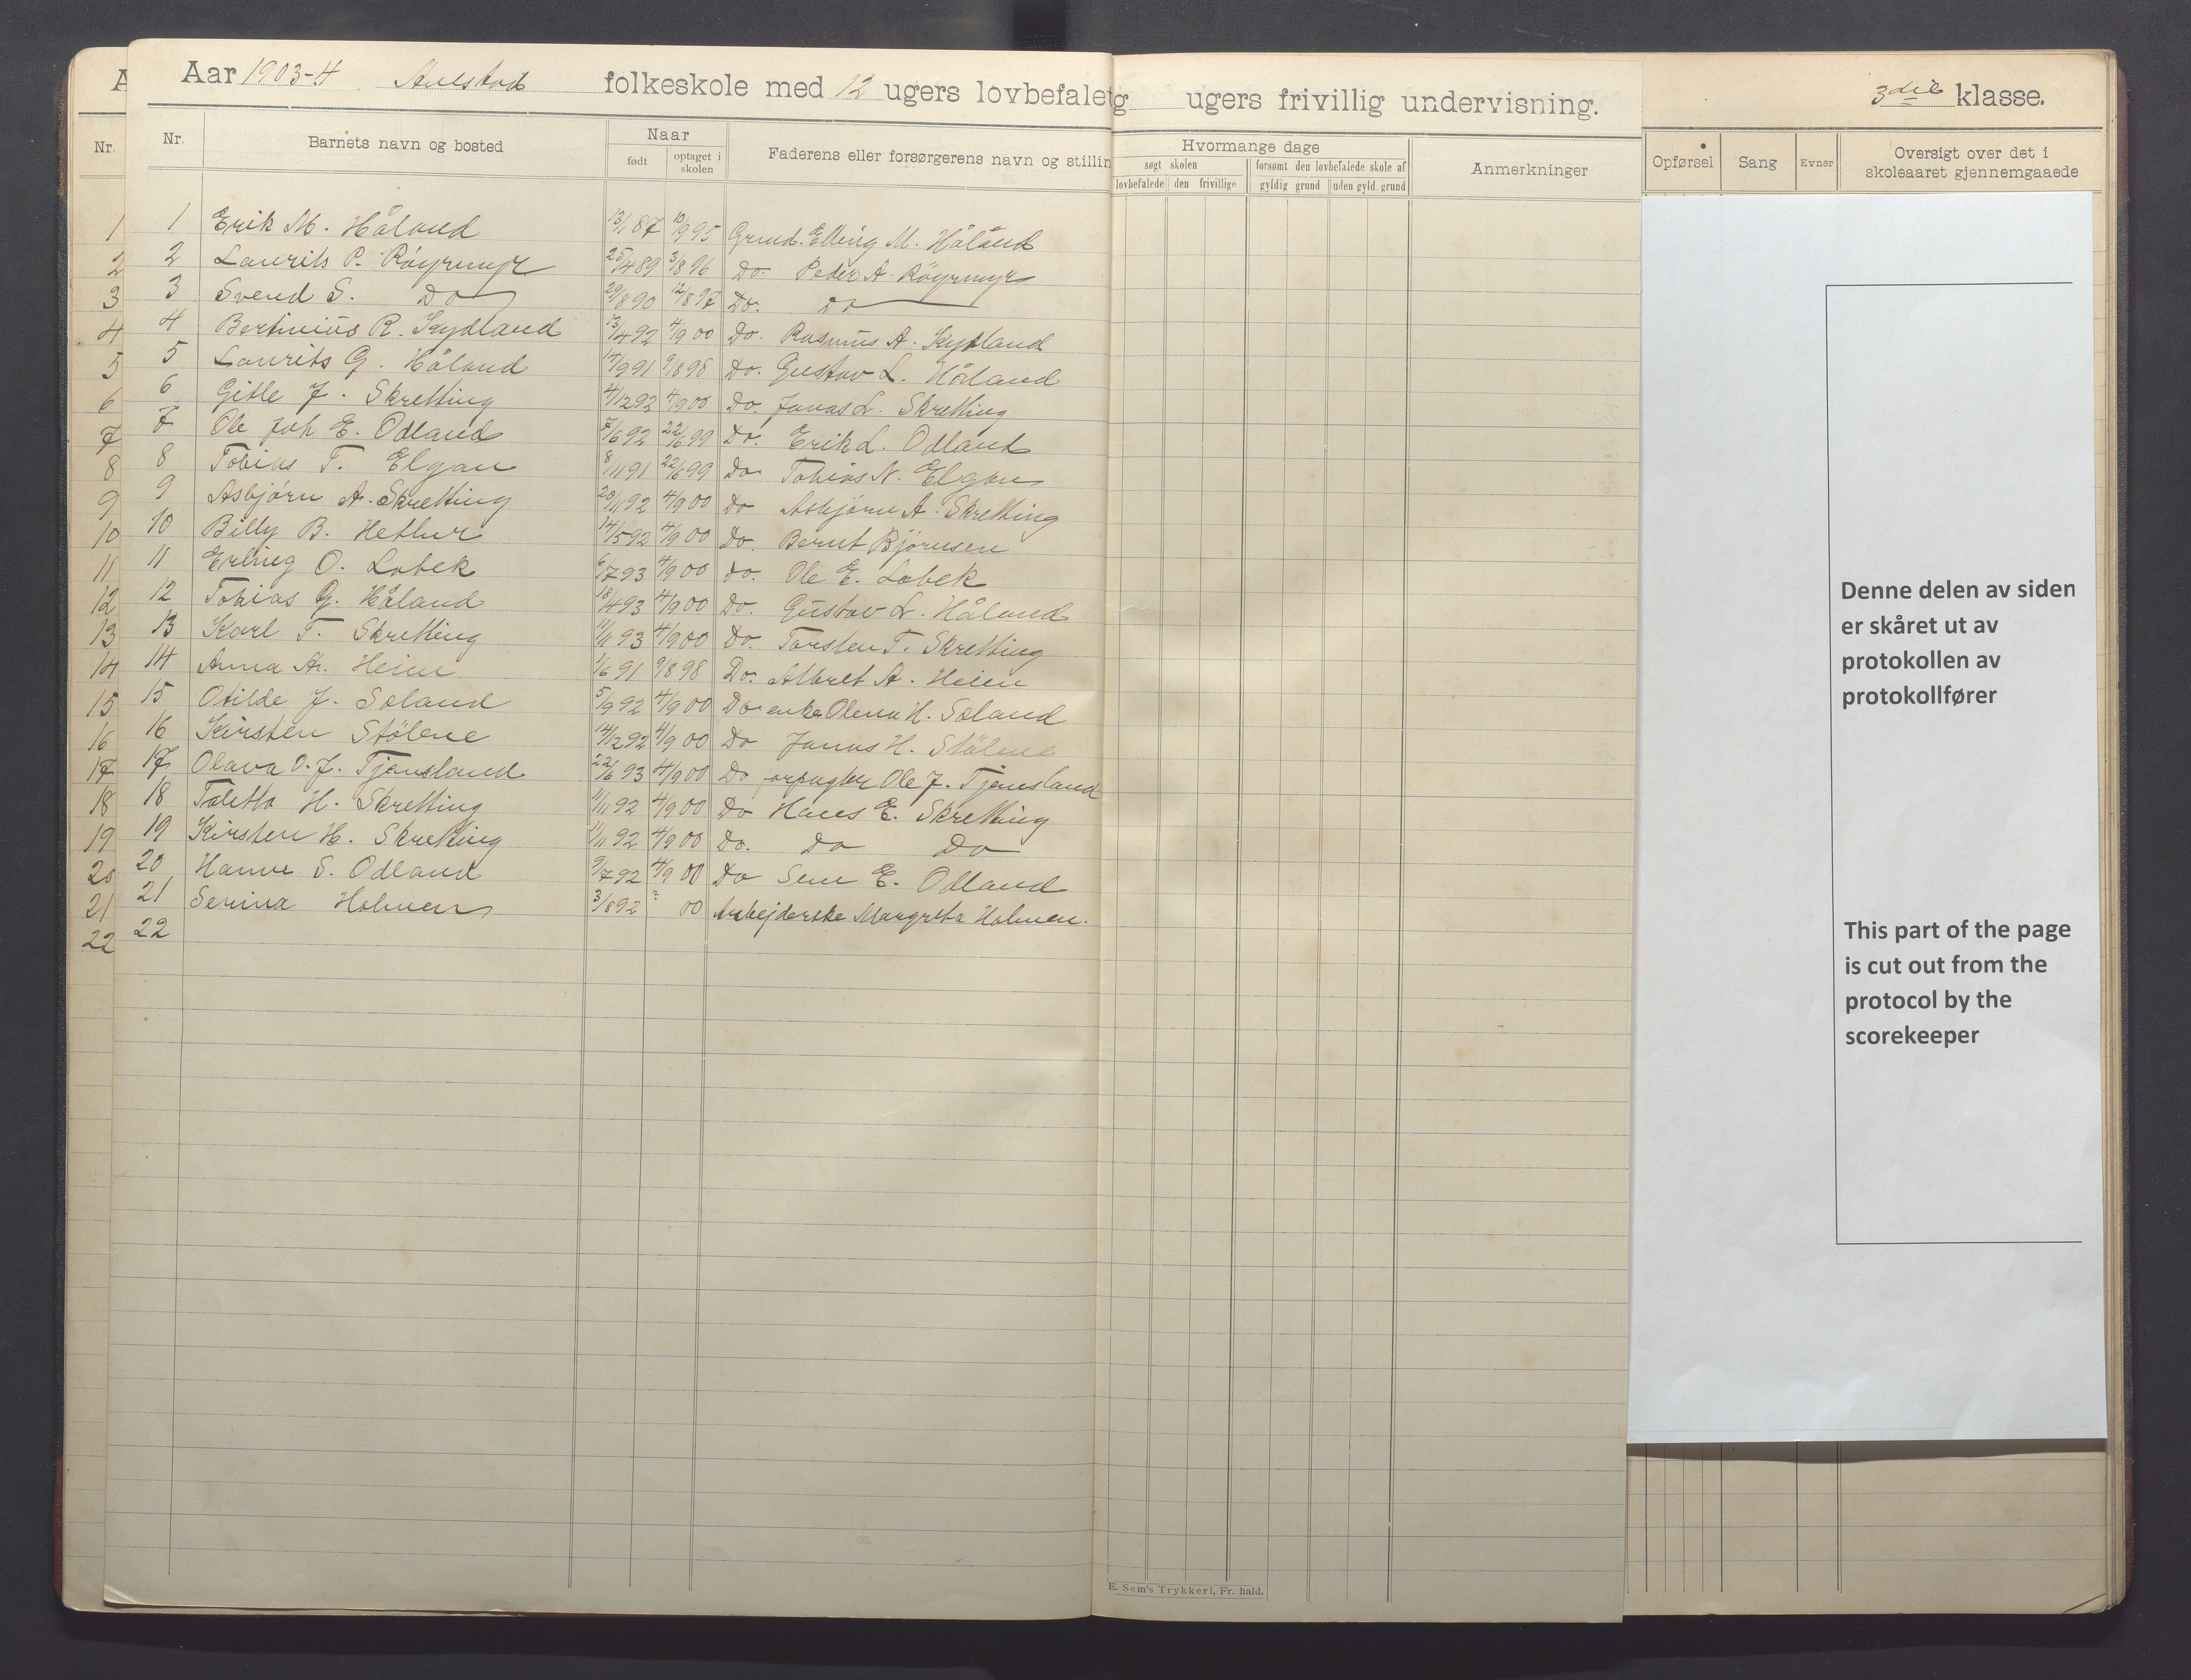 Aar 1903-4 Aulstad folkeskole med 12 ugers lovbefalet g ugers frivillig undervisning. 3die klasse.
Nr. Nr. Barnets navn og bosted Naar født optaget i skolen Faderens eller forsørgerens navn og stillin Hvormange dage søgt skolen lovbefalede den frivillige forsømt den lovbefalede skole af gyldig grund uden gyld. grund Anmerkninger Opførsel Sang Evner Oversigt over det i skoleaaret gjennemgaaede
1 1 Erik M. Håland 13/1 87 10/9 95 Grmd. Elling M. Håland
2 2 Laurits P. Röyrmyr 25/4 89 3/8 96 Do. Peder A. Röyrmyr
3 3 Svend S. Do 29/8 90 12/8 97 Do. Do
4 4 Bertinius R. Kydland 13/4 92 4/9 00 Do. Rasmus A. Kydland
5 5 Laurits G. Håland 14/9 91 9/8 98 Do. Gustav L. Håland
6 6 Gitle J. Skretting 4/12 92 4/9 00 Do. Jonas L. Skretting
7 7 Ole Joh E. Odland 7/6 92 22/6 99 Do. Erik L. Odland
8 8 Tobias T. Elgan 8/11 91 22/6 99 Do Tobias N. Elgan
9 9 Asbjörn A. Skretting 20/11 92 4/9 00 Do Asbjörn A. Skretting
10 10 Billy B. Hetlur 14/5 92 4/9 00 Do. Bernt Björnsen
11 11 Erling O. Lobek 6/7 93 4/9 00 Do. Ole E. Lobek
12 12 Tobias G. Håland 18/4 93 4/9 00 Do. Gustav L. Håland
13 13 Karl T. Skretting 11/1 93 4/9 00 Do. Torsten T. Skretting
14 14 Anna A. Heien 1/6 91 9/8 98 Do. Albret A. Heien
15 15 Otilde J. Soland 5/9 92 4/9 00 Do enke Olena H. Soland
16 16 Kirsten Stölene 14/12 92 4/9 00 Do Jonas H. Stölene
17 17 Olava O. J. Tjensland 22/6 93 4/9 00 Do forpagter Ole J. Tjensland
18 18 Taletta H. Skretting 11/11 92 4/9 00 Do Hans E. Skretting
19 19 Kirsten H. Skretting 11/11 92 4/9 00 Do. Do Do
20 20 Hanne S. Odland 9/7 92 4/9 00 Do Sem E. Odland
21 21 Serina Holmen 3/8 92 00 Arbejderske Margreta Holmen.
22 22
Denne delen av siden
er skåret ut av
protokollen av
protokollfører
This part of the page
is cut out from the
protocol by the
scorekeeper
E. Sem's Trykkeri, Fr. hald.